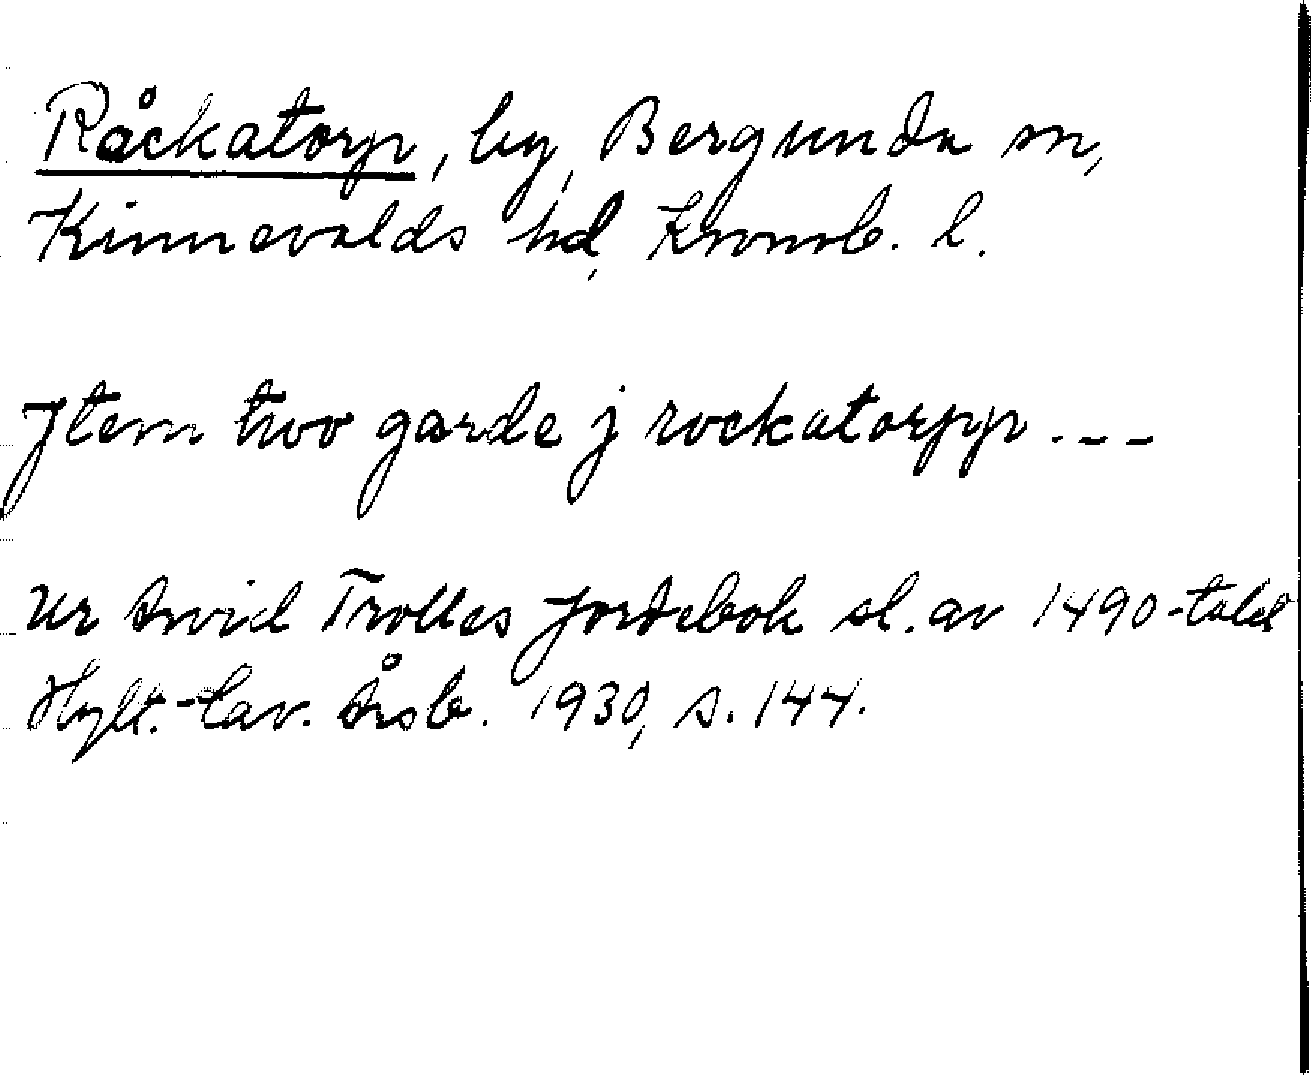 Råckatorp, by, Bergunda sn,
Kinnevalds hd, Kronob. l.
Jtem two garde j rockatorpp . - - -
Ur Arvid Trolles jordebok sl. av 1490-talet
Hylt.-Cav. Årsb. 1930, s. 144.